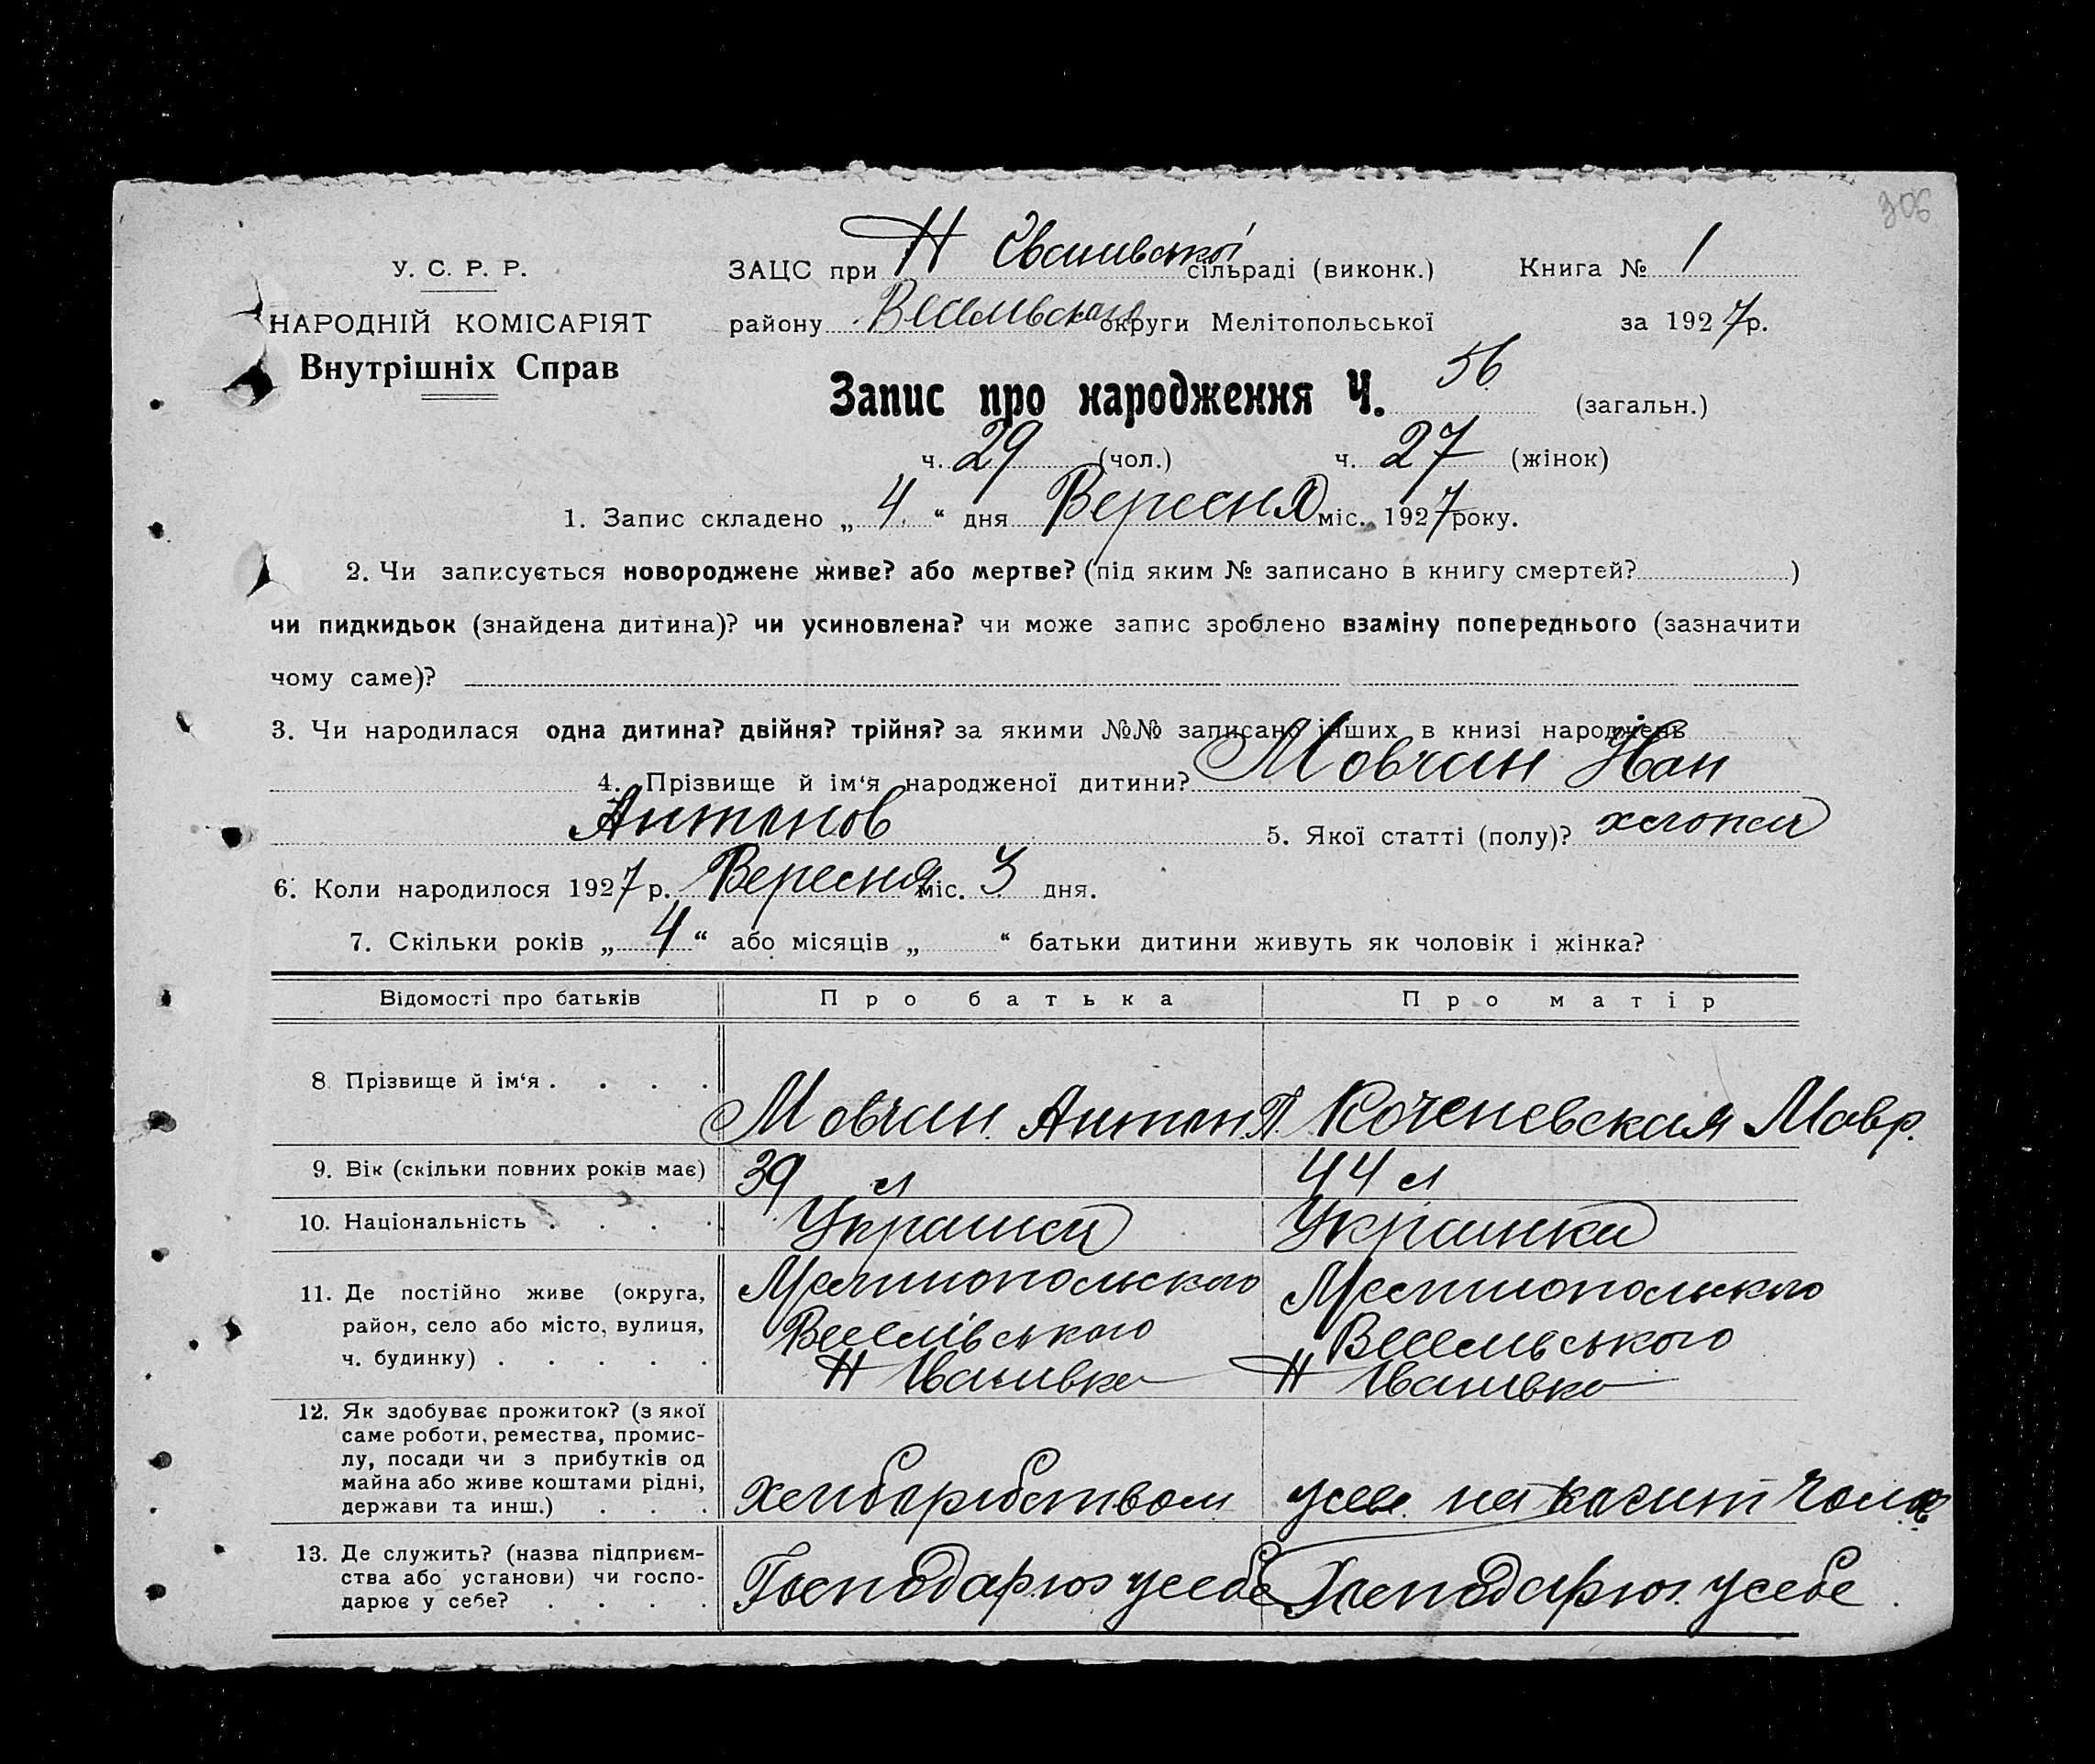 306
У. С. Р. Р.
НАРОДНІЙ КОМІСАРІЯТ
Внутрішніх Справ
ЗАЦС при Н Іванивської сільраді (виконк.) Книга № 1
району Веселивского округи Мелітопольської за 1927 р.
Запис про народження Ч. 56 (загальн.)
ч. 29 (чол.) ч. 27 (жінок)
1. Запис складено „ 4 “ дня Вересня міс. 1927 року.
2. Чи записується новороджене живе? або мертве? (під яким № записано в книгу смертей? )
чи пидкидьок (знайдена дитина)? чи усиновлена? чи може запис зроблено взаміну попереднього (зазначити
чому саме)?
3. Чи народилася одна дитина? двійня? трійня? за якими №№ записано інших в книзі народжень
4. Прізвище й ім‘я народженої дитини? Мовчан Иван
Антонов 5. Якої статті (полу)? хлопец
6. Коли народилося 1927 р. Вересня міс. 3 дня.
7. Скільки років „ 4 “ або місяців „ “ батьки дитини живуть як чоловік і жінка?
Відомості про батьків Про батька Про матір
8 Прізвище й ім‘я . . . . Мовчан Антон П. Коченевская Мавр.
9. Вік (скільки повних років має) 39 л 44 л
10. Національність . . . . Украинец Украинка
11. Де постійно живе (округа, район, село або місто, вулиця, ч. будинку) . . . . .
Мелитопольского
Веселівського
Н Иванивка
Мелитопольского
Веселивського
Н Иванивка
12. Як здобуває прожиток? (з якої саме роботи, ремества, промислу, посади чи з прибутків од майна або живе коштами рідні, держави та инш.) . . .
хлиборобством
на кошт чолов
13. Де служить? (назва підприємства або установи) чи господарює у себе? . . . .
Господарюэ у себе
Господарюэ у себе